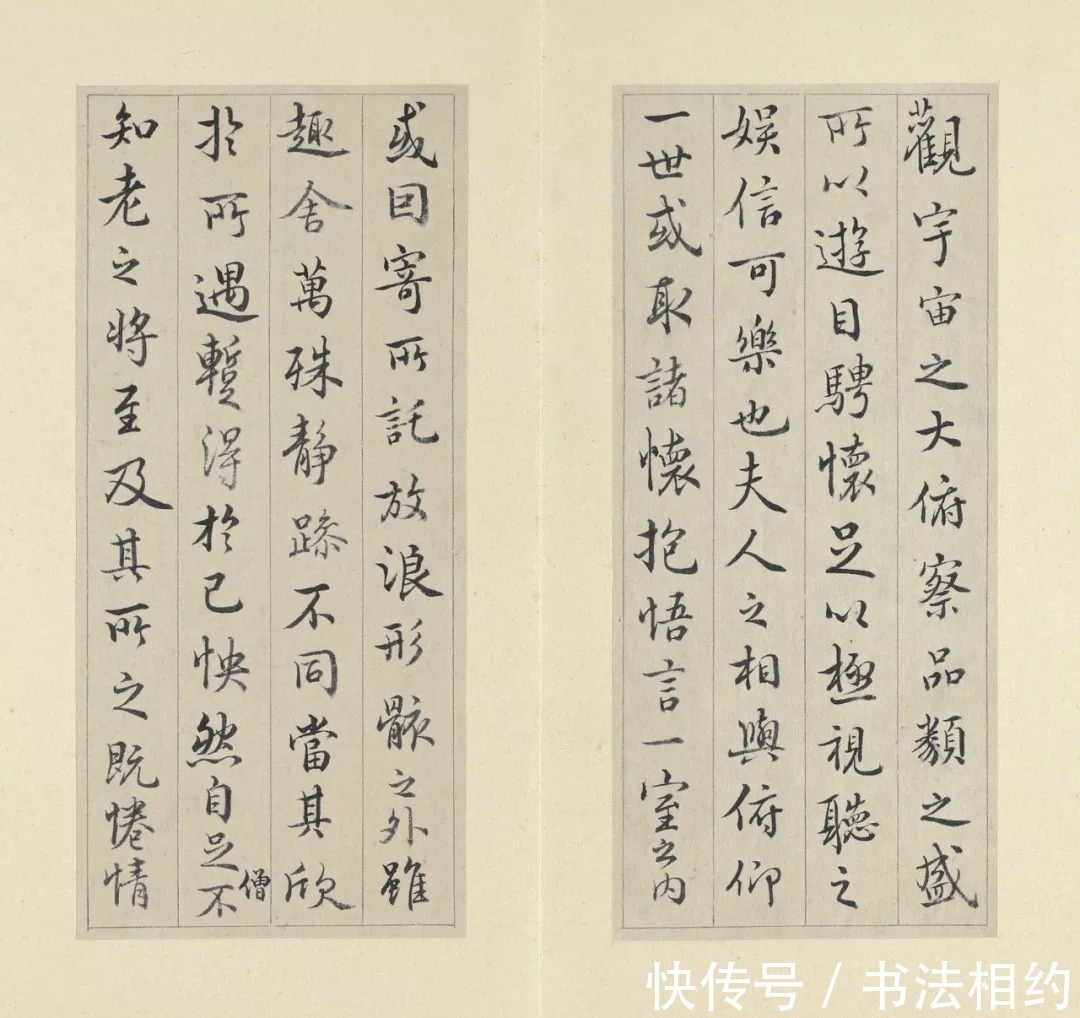 觀宇宙之大俯察品類之盛
所以遊目騁懷足以極視聽之
娛信可樂也夫人之相與俯仰
一世或取諸懷抱悟言一室之內
或因寄所託放浪形骸之外雖
趣舍萬殊靜躁不同當其欣
於所遇暫得於己怏然自足不
僧
知老之將至及其所之既惓情
快传号 / 书法相约